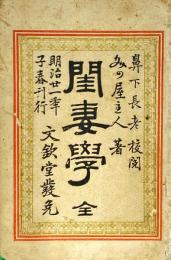 鼻下長老校閲
女の屋主人著
閨妻學 全
明治廿一年
子春刊行
文欽堂發兌